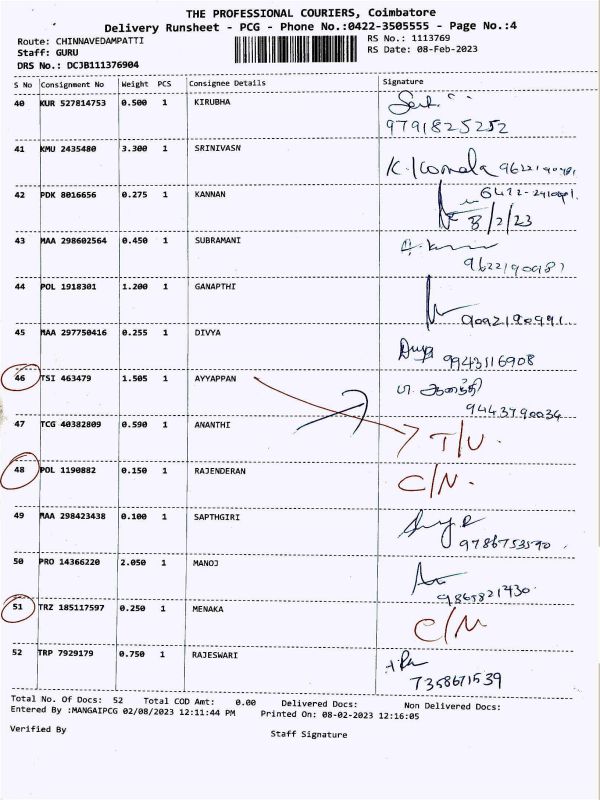 THE PROFESSIONAL COURIERS, Coimbatore
Delivery Runsheet - PCG - Phone No.:0422-3505555 - Page No.:4
Route: CHINNAVEDAMPATTI
RS No.: 1113769
Staff: GURU
RS Date: 08-Feb-2023
DRS No.: DCJB111376904
S No Consignment No Weight PCS Consignee Details Signature
40 KUR 527814753 0.500 1 KIRUBHA
9791825252
41 KMU 2435480 3.300 1 SRINIVASN
K. Komala
42 PDK 8016656 0.275 1 KANNAN
8/2/23
43 MAA 298602564 0.450 1 SUBRAMANI
44 POL 1918301 1.200 1 GANAPTHI
45 MAA 297750416 0.255 1 DIVYA
Divya 9943116908
46 TSI 463479 1.505 1 AYYAPPAN
ஆனந்தி
9443790034
47 TCG 40382809 0.590 1 ANANTHI
T/U
48 POL 1190882 0.150 1 RAJENDERAN
C/N.
49 MAA 298423438 0.100 1 SAPTHGIRI
9786753590
50 PRO 14366220 2.050 1 MANOJ
9865821430
51 TRZ 185117597 0.250 1 MENAKA
C/N
52 TRP 7929179 0.750 1 RAJESWARI
7358671539
Total No. Of Docs: 52 Total COD Amt: 0.00 Delivered Docs: Non Delivered Docs:
Entered By :MANGAIPCG 02/08/2023 12:11:44 PM Printed On: 08-02-2023 12:16:05
Verified By
Staff Signature